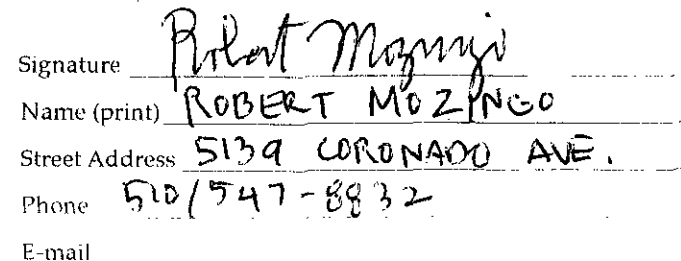 Signature Robert Mozingo
Name (print) ROBERT MOZINGO
Street Address 5139 CORONADO AVE.
Phone 510/547-8832
E-mail